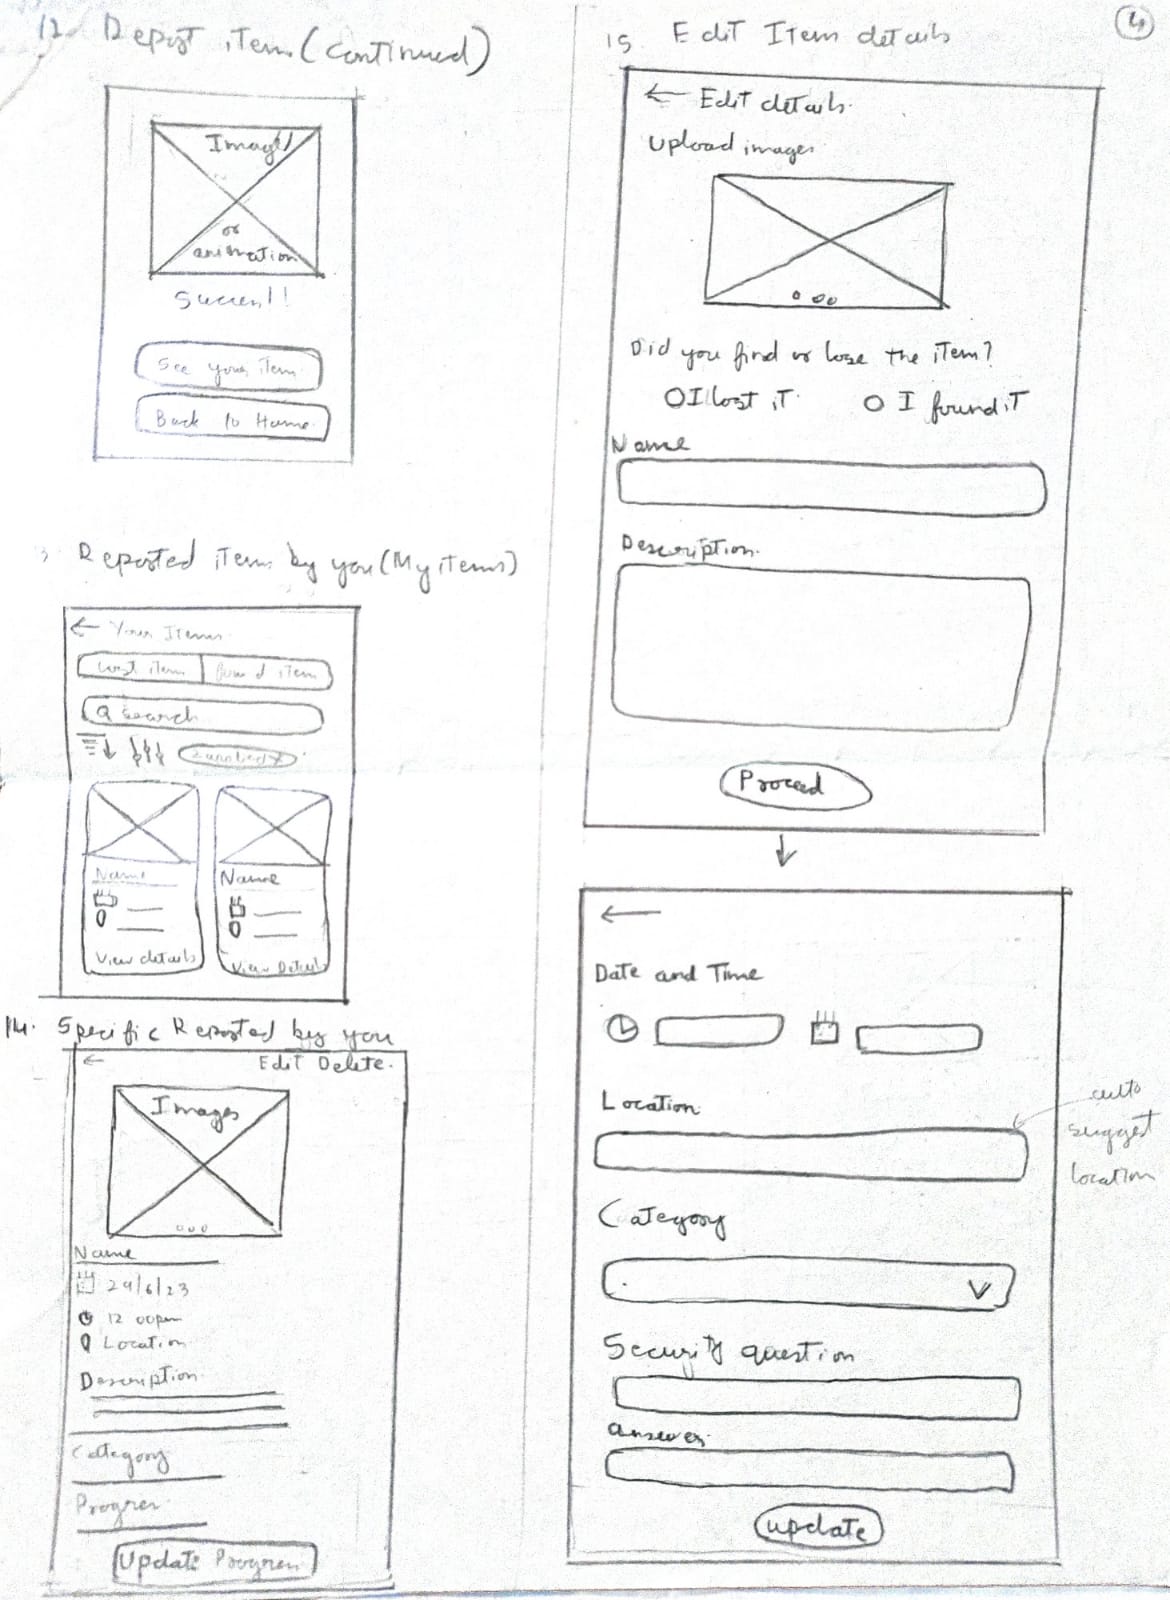 4
12. Report item (continued)
Image/
or
animation
Success!!
See your item
Back to Home
3. Reported items by you (My items)
← Your Items
Lost item
found item
search
Name
View details
Name
View Details
14. Specific Reported by you
←
Edit Delete.
Images
Name
29/6/23
12 00pm
Location
Description
Category
Progress
Update Progress
15. Edit Item details
← Edit details
Upload images
Did you find or lose the item?
I lost it
I found it
Name
Description
Proceed
↓
←
Date and Time
Location
auto
suggest
location
Category
Security question
answer
update